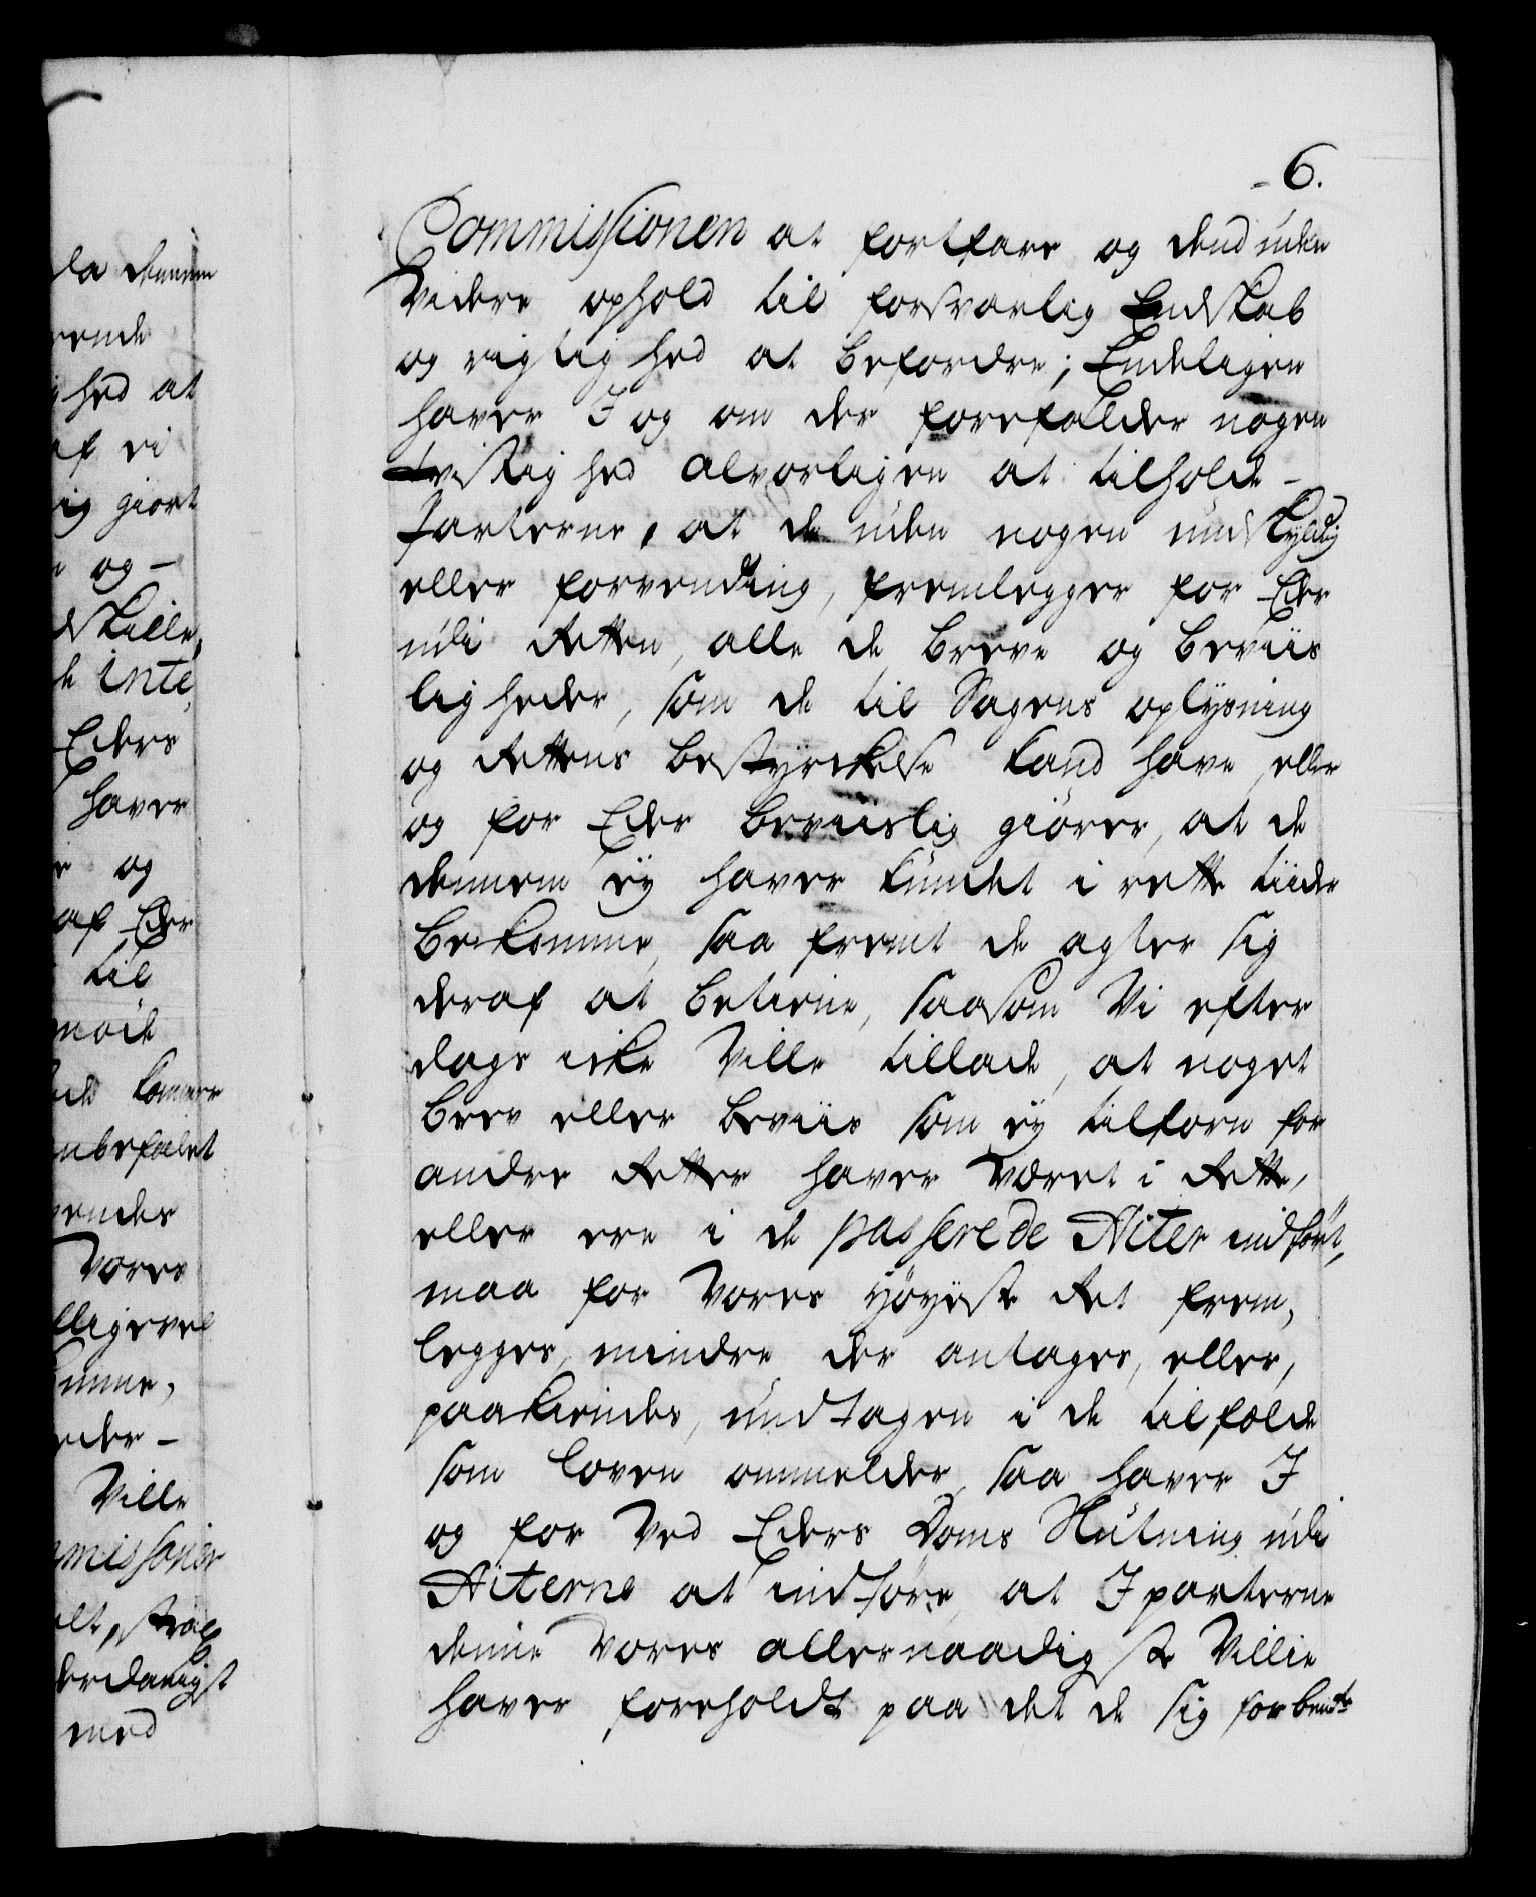 6.
Commissionen at fortfare og dend uden
Videre ophold til forsvarlig Endskab
og rigtighed at befordre; Endeligen
haver I og om der forefalder nogen
tvistighed alvorligen at tilholde
Parterne, at de uden nogen undskyldig
eller forvending, fremlegger for Eder
udi Retten, alle de breve og beviis
ligheder, som de til Sagens oplysning
og Rettens bestyrckelse kand have eller
og for Eder beviislig giører, at de
dennem ey haver kundet i rette tiide
bekomme, saa fremt de agter sig
deraf at betiene, saasom Vi efter
dags icke Ville tillade, at noget
brev eller beviis som ey tilforn for
andre Retter haver været i Rette,
eller ere i de passerede Acter indført,
maa for Vores Høyeste Ret frem,
legges, mindre der antages, eller,
paakiendes, undtagen i de tilfælde
som loven ommelder, saa haver I
og for Ved Eders Doms Slutning udi
Acterne at indføre, at I parterne
denne Vores allernaadigste Villie
haver foreholdt paa det de sig
la dennem
rende
hed at
af ei
ig giort
og
dskille,
de inte
Eders
haver
og
af Eder
til
kommer
nbefalet
Vores
lligevel
Ville
missarier
lt, strax
derdanigst
med